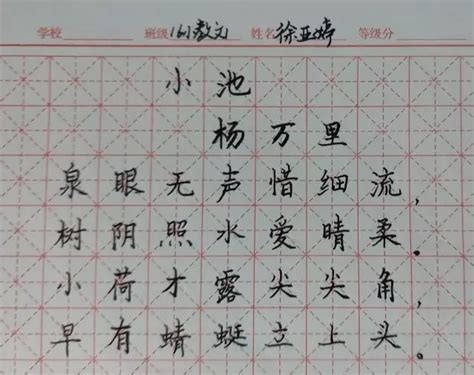 学校 班级161教文 姓名徐亚婷 等级分
小池
杨万里
泉眼无声惜细流，
树阴照水爱晴柔。
小荷才露尖尖角，
早有蜻蜓立上头。